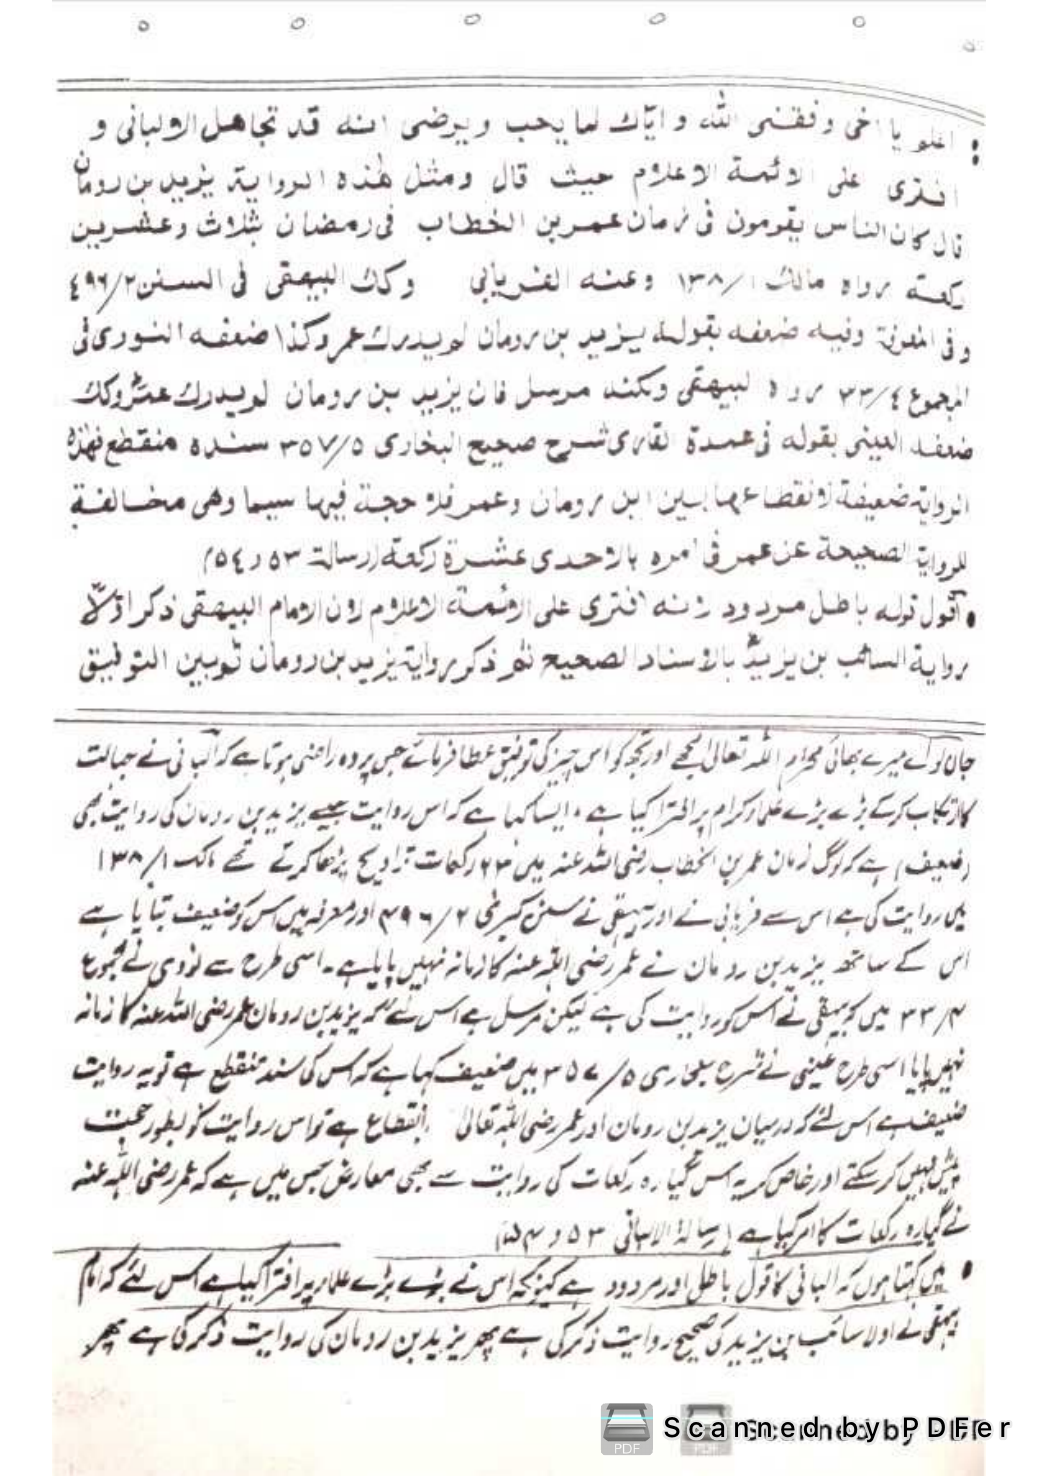 : اعلم يا اخی وفقنی الله و ايّاك لما يحب ويرضی انه قد تجاهل الالبانی و
افتری علی الائمة الاعلام حيث قال ومثل هذه الرواية يزيد بن رومان
قال كان الناس يقومون فی زمان عمر بن الخطاب فی رمضان بثلاث وعشرين
ركعة رواه مالك ١/١٣٨ وعنه الفريابی وكك البيهقی فی السنن ٤٩٦/٢
وفی المعرفة وفيه ضعفه بقوله يزيد بن رومان لم يدرك عمر وكذا ضعفه النووی فی
المجموع ٣٣/٤ رواه البيهقی ولكنه مرسل فان يزيد بن رومان لم يدرك عمرؓ وكك
ضعفه العينی بقوله فی عمدة القاری شرح صحيح البخاری ٣٥٧/٥ سنده منقطع فهذه
الرواية ضعيفة لانقطاعها بين ابن رومان وعمر فلا حجة فيها سيما وهی مخالفة
للرواية الصحيحة عن عمر فی امره بالاحدی عشرة ركعة (رسالة ٥٣ و ٥٤)
• اقول قوله باطل مردود لانه افتری علی الائمة الاعلام لان الامام البيهقی ذكر اوّلاً
رواية السائب بن يزيدؓ بالاسناد الصحيح ثم ذكر رواية يزيد بن رومان ثم بين التوفيق
جان لو اے میرے بھائی محترم اللہ تعالی مجھے اور تجھ کو اس چیز کی توفیق عطا فرمائے جس پر وہ راضی ہوتا ہے کہ البانی نے جہالت
کا ارتکاب کرکے بڑے بڑے علماء کرام پر افترا کیا ہے ، ایسا کہا ہے کہ اس روایت جیسے یزید بن رومان کی روایت بھی
(ضعیف) ہے کہ لوگ زمان عمر بن الخطاب رضی اللہ عنہ میں ۲۳ رکعات تراویح پڑھا کرتے تھے مالک ۱/۱۳۸
میں روایت کی ہے اس سے فریابی نے اور بیہقی نے سنن کبری ۴۹۶/۲ اور معرفہ میں اس کو ضعیف بتایا ہے
اس کے ساتھ یزید بن رومان نے عمر رضی اللہ عنہ کا زمانہ نہیں پایا ہے ۔ اسی طرح سے نووی نے مجموع
۳۳/۴ میں کہ بیہقی نے اس کو روایت کی ہے لیکن مرسل ہے اس لئے کہ یزید بن رومان عمر رضی اللہ عنہ کا زمانہ
نہیں پایا اسی طرح عینی نے شرح بخاری ۳۵۷/۵ میں ضعیف کہا ہے کہ اس کی سند منقطع ہے تو یہ روایت
ضعیف ہے اس لئے کہ درمیان یزید بن رومان اور عمر رضی اللہ تعالی انقطاع ہے تو اس روایت کو بطور حجت
پیش نہیں کر سکتے اور خاص کر یہ اس گیارہ رکعات کی روایت سے بھی معارض جس میں ہے کہ عمر رضی اللہ عنہ
نے گیارہ رکعات کا امر کیا ہے (رسالۃ البانی ۵۳ و ۵۴)
• میں کہتا ہوں کہ البانی کا قول باطل اور مردود ہے کیونکہ اس نے بڑے بڑے علماء پر افترا کیا ہے اس لئے کہ امام
بیہقی نے اولا سائب بن یزید کی صحیح روایت ذکر کی ہے پھر یزید بن رومان کی روایت ذکر کی ہے پھر
Scanned by PDFer